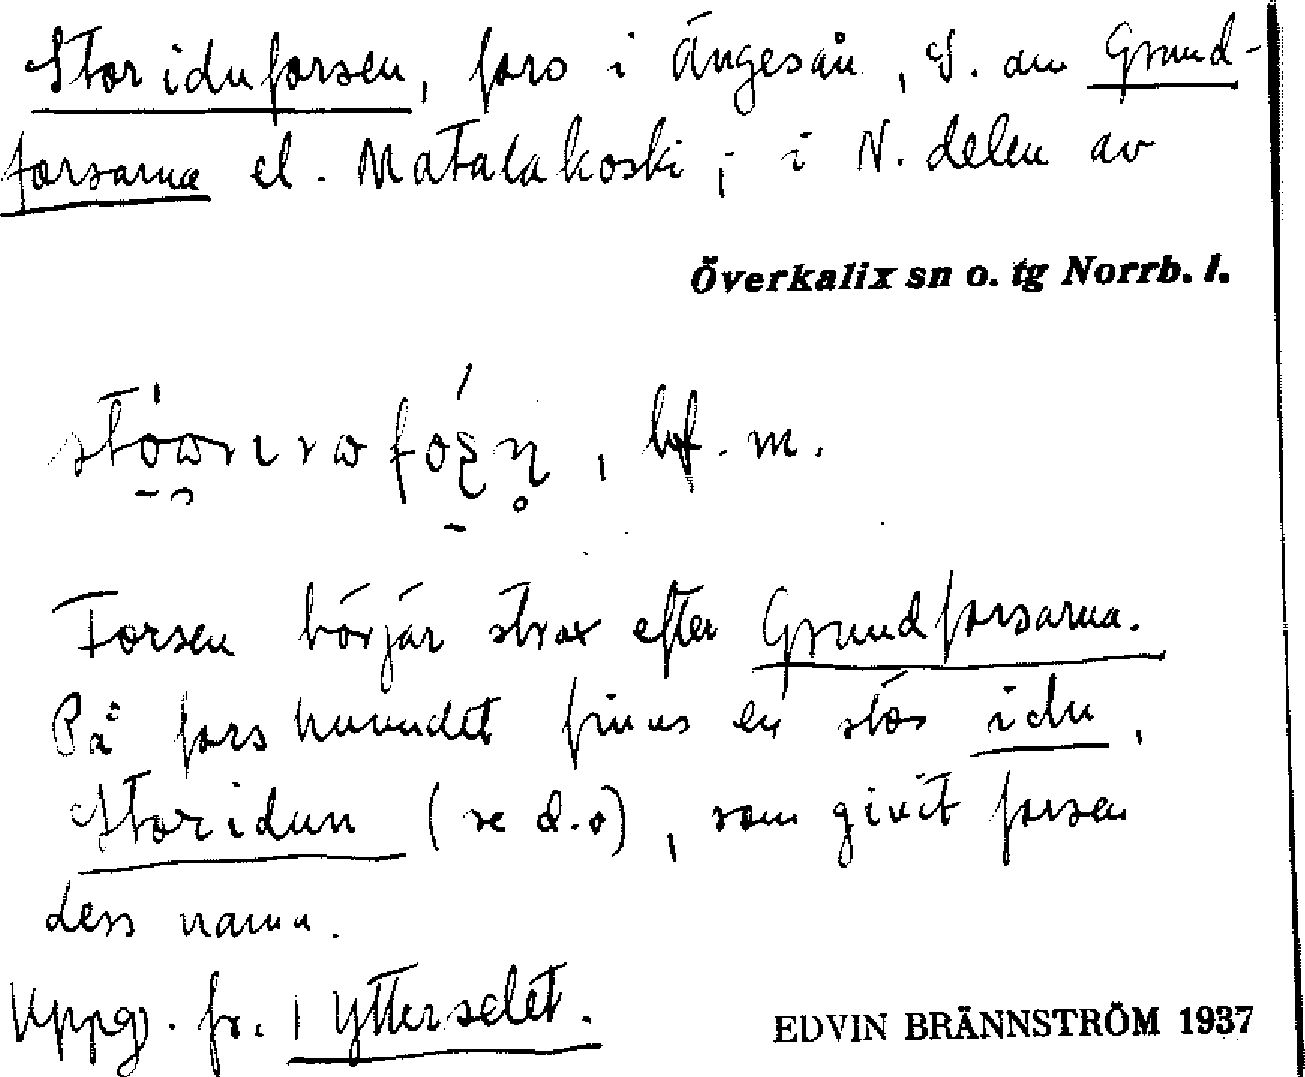 Storiduforsen, fors i Ängesån, S. om Grund-
forsarna el. Matalakoski, i N. delen av
Överkalix sn o. tg Norrb. l.
, bf. m.
Forsen börjar strax efter Grundforsarna.
På forshuvudet finns en stor idu,
Storidun (se d.o), som givit forsen
dess namn.
Uppg. fr. Ytterselet.
EDVIN BRÄNNSTRÖM 1937